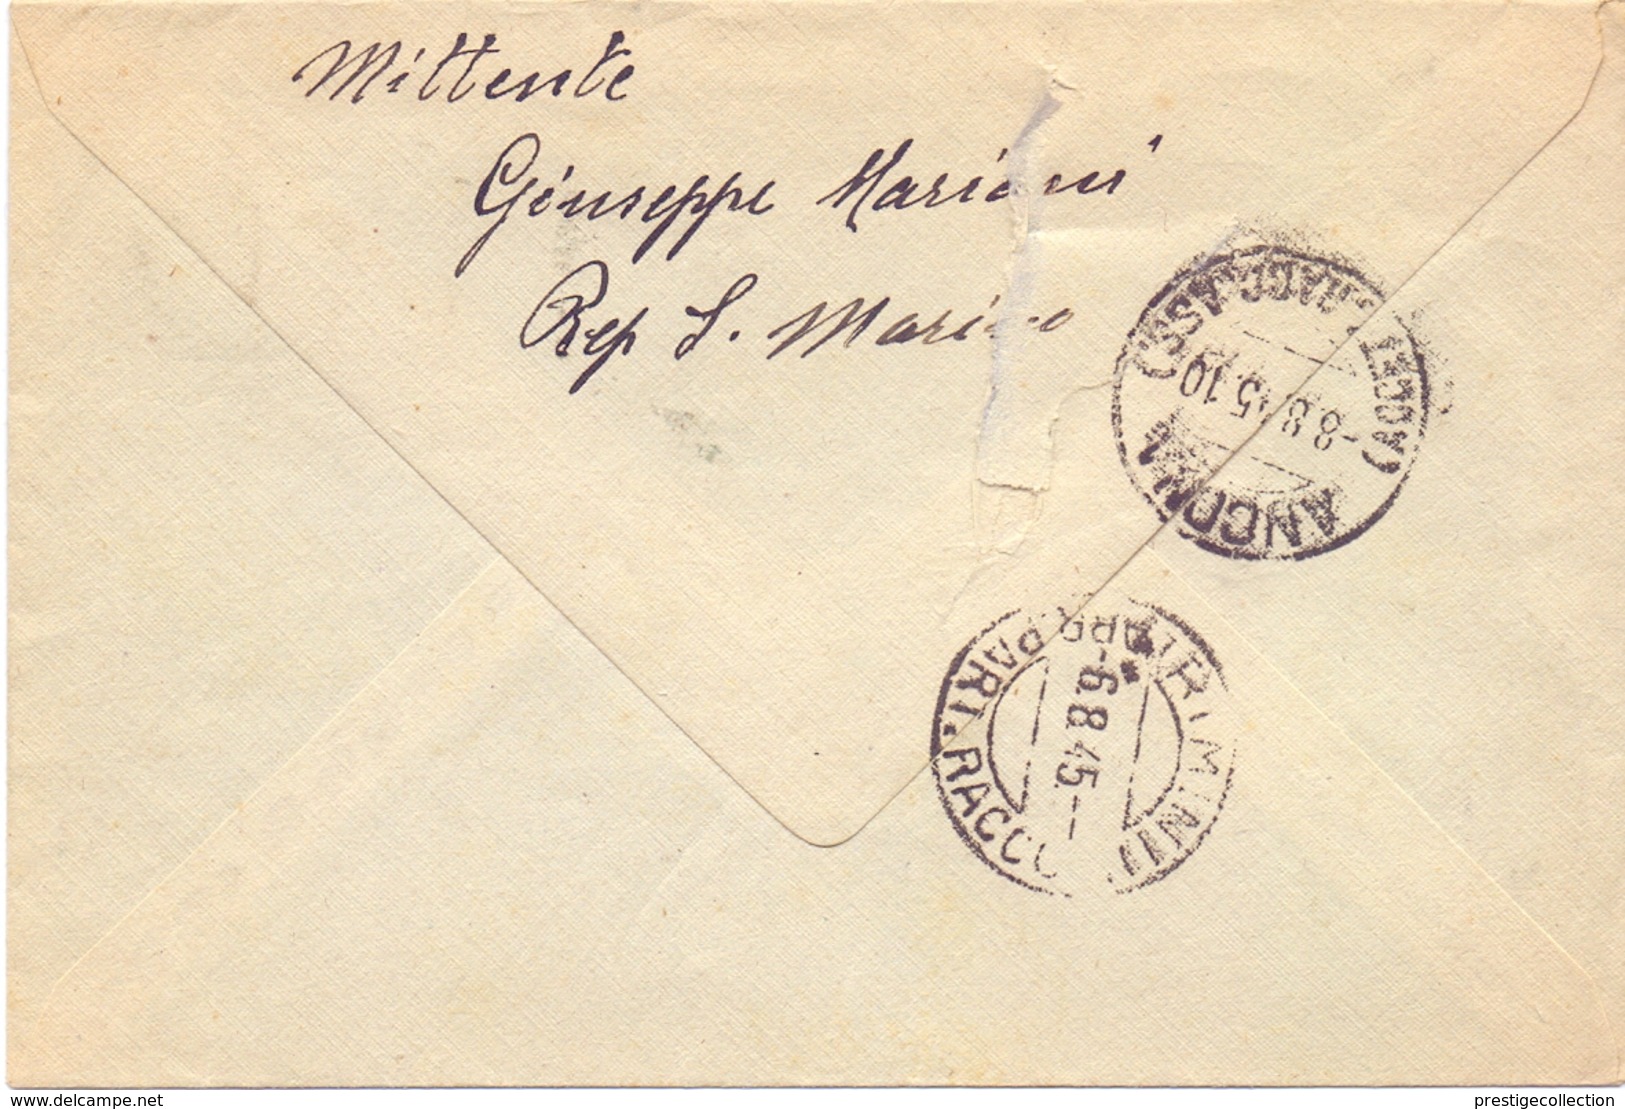 Mittente
Giuseppe Mariani
Rep S. Marino
ANCONA
-8.8.45.10
(RIMINI)
ARR. PARI. RACCO
-6.8.45.--
www.delcampe.net
prestigecollection